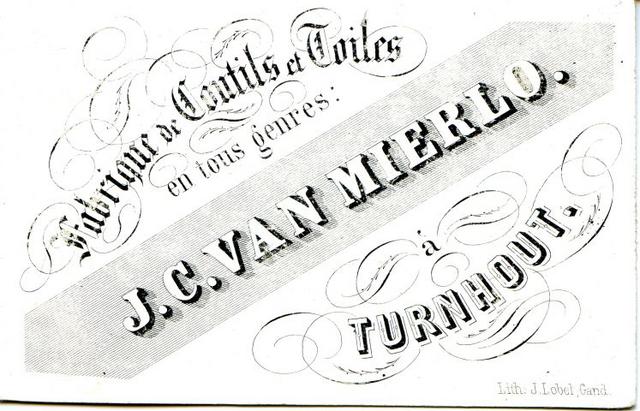 Fabrique de Coutils et Toiles
en tous genres:
J.C. VAN MIERLO.
à
TURNHOUT.
Lith: J. Lobel, Gand.